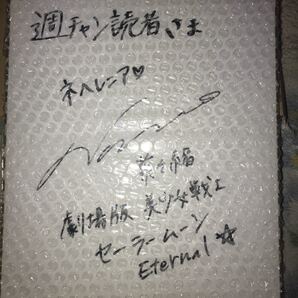 週チャン読者さま
ネヘレニア♡
劇場版 美少女戦士
セーラームーン
Eternal☆